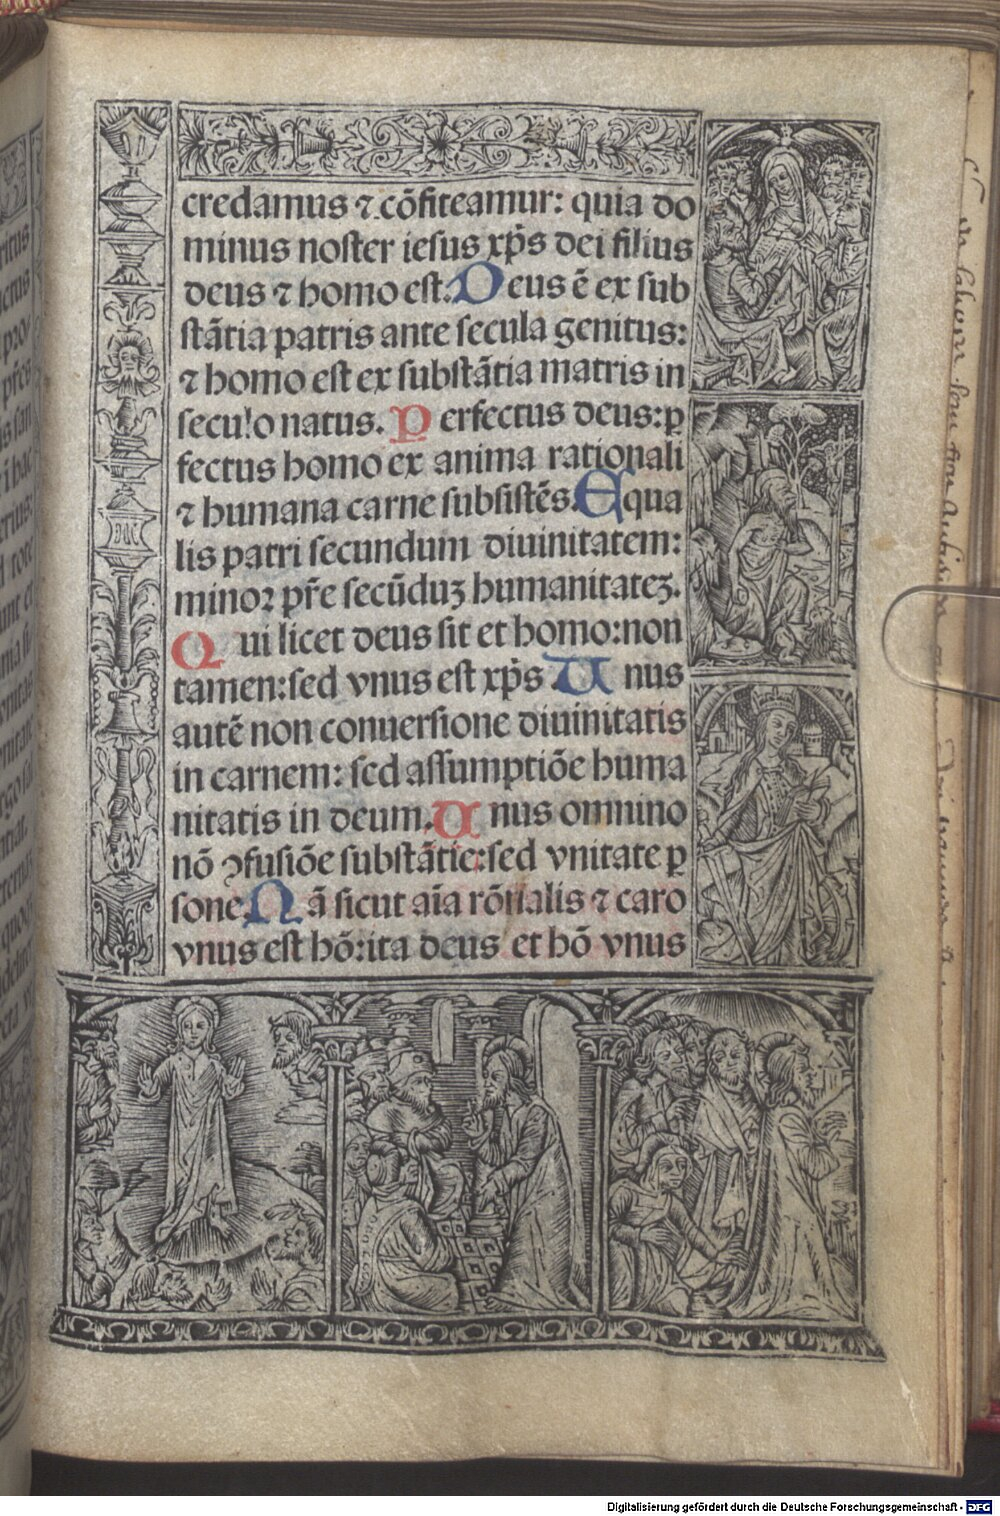 credamus ⁊ cōfiteamur: quia do
minus noster iesus xp̄s dei filius
deus ⁊ homo est. Deus ē ex sub
stātia patris ante secula genitus:
⁊ homo est ex substātia matris in
seculo natus. Perfectus deus: ꝑ
fectus homo ex anima rationali
⁊ humana carne subsistēs. Equa
lis patri secundum diuinitatem:
minoꝛ pr̄e secūduꝫ humanitateꝫ.
Qui licet deus sit et homo: non
tamen: sed vnus est xp̄s Unus
autē non conuersione diuinitatis
in carnem: sed assumptiōe huma
nitatis in deum. Unus omnino
nō ꝯfusiōe substātie: sed vnitate ꝑ
sone. Nā sicut aīa rōnalis ⁊ caro
vnus est hō: ita deus et hō vnus
Digitalisierung gefördert durch die Deutsche Forschungsgemeinschaft - DFG